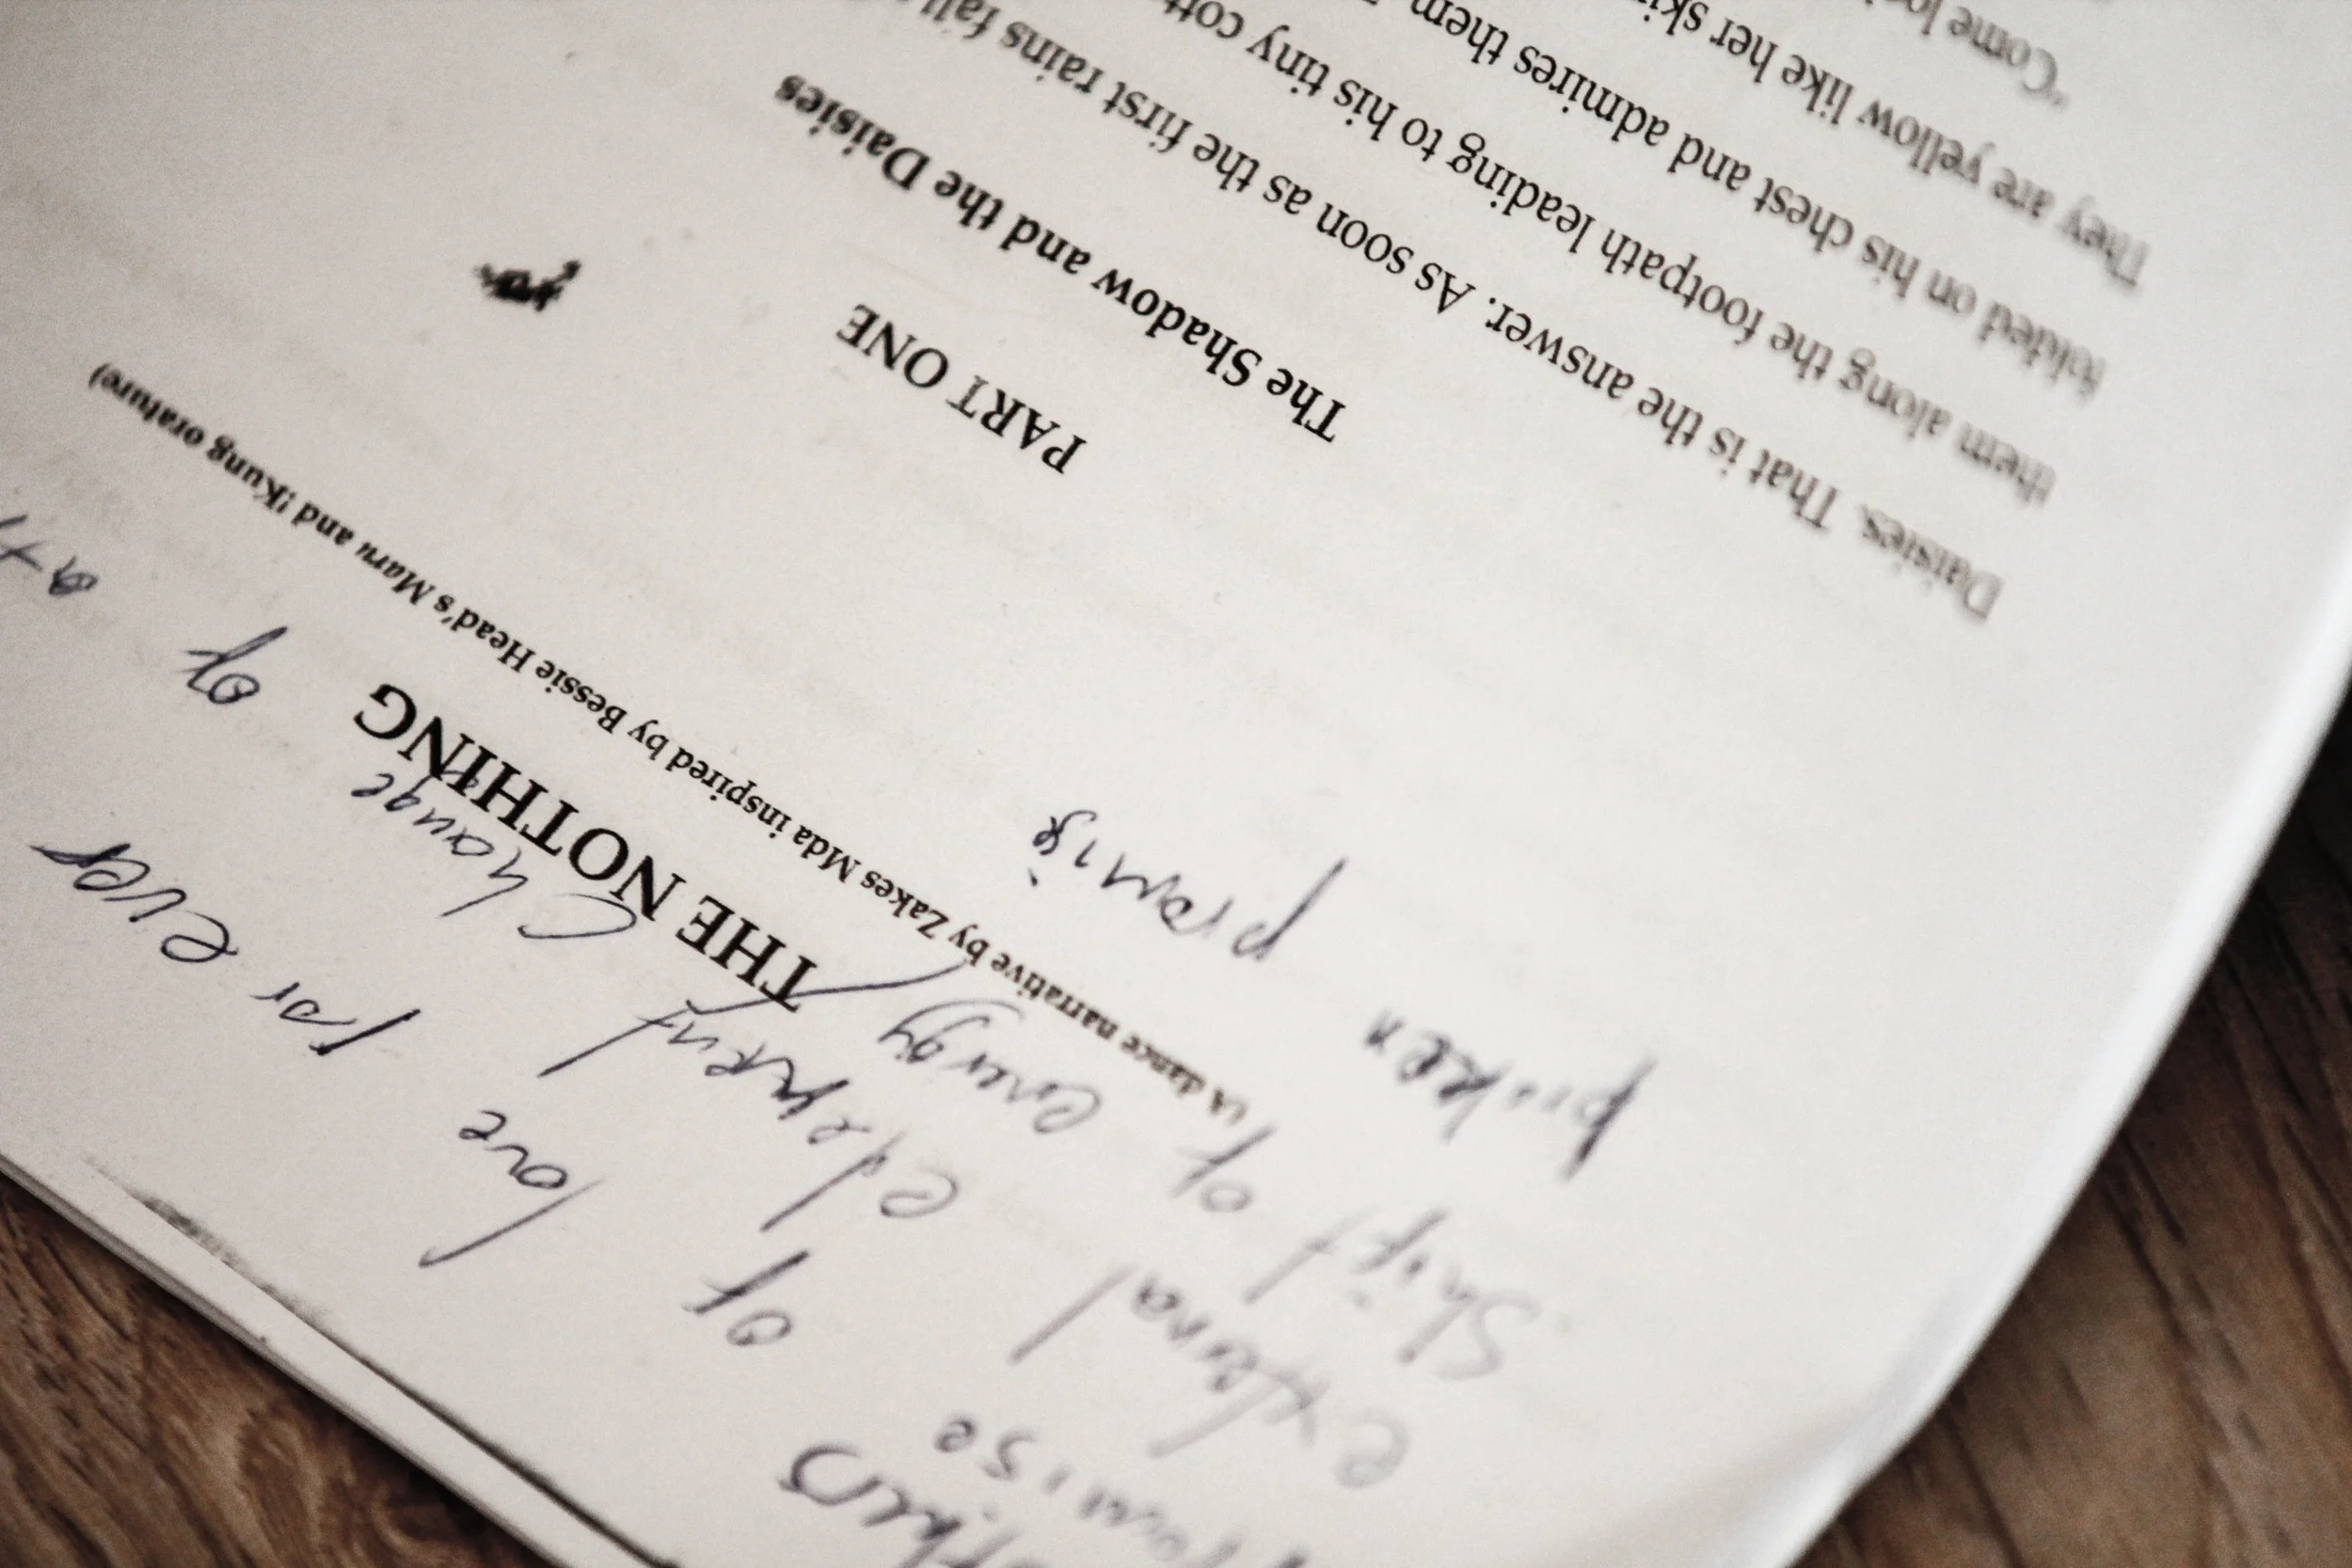 others
promise
external
Shift of energy
of element
Change
love
for ever
of
THE NOTHING
(A dance narrative by Zakes Mda inspired by Bessie Head's Maru and !Kung orature)
promis
PART ONE
The Shadow and the Daisies
Daisies. That is the answer. As soon as the first rains fall
them along the footpath leading to his tiny
folded on his chest and admires them
They are yellow like her
"Come